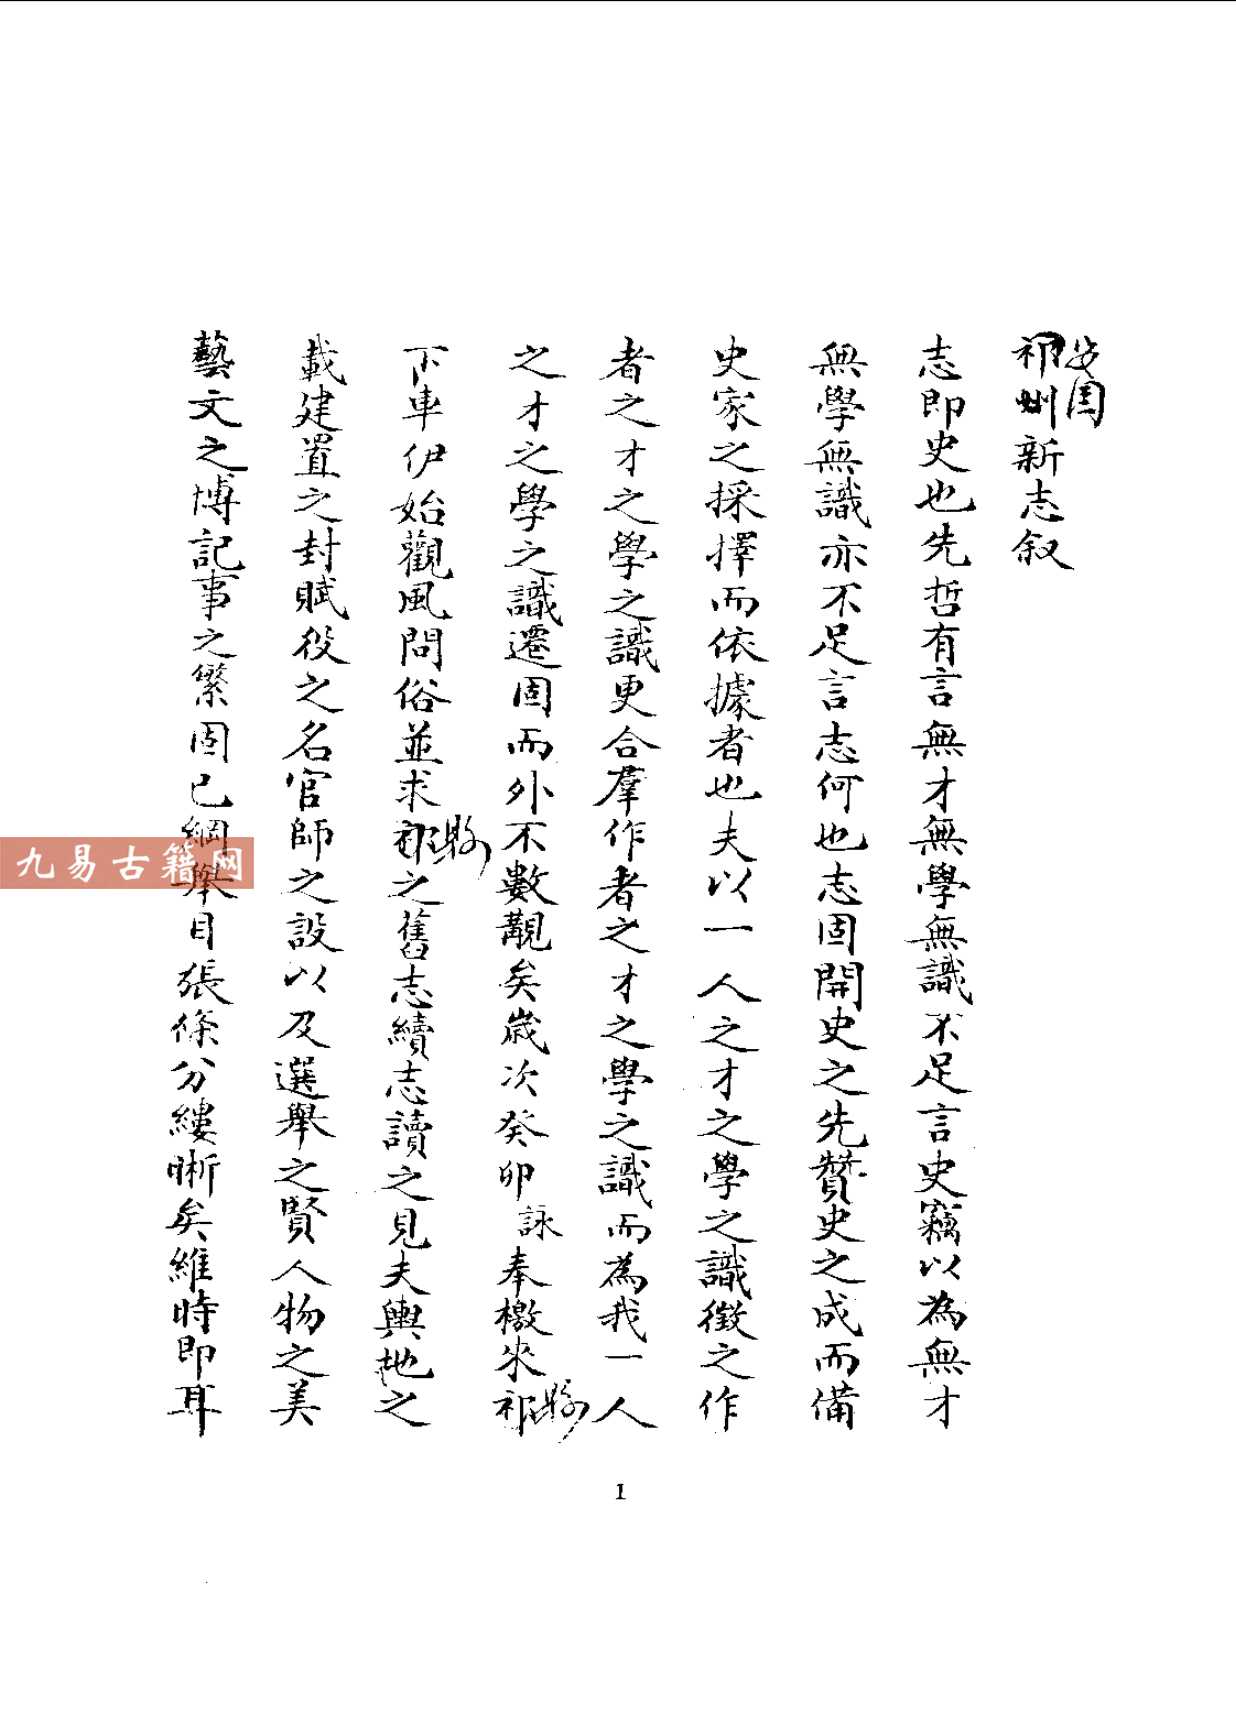 安国
祁州新志叙
志即史也先哲有言無才無學無識不足言史竊以為無才
無學無識亦不足言志何也志固開史之先贊史之成而備
史家之採擇而依據者也夫以一人之才之學之識徵之作
者之才之學之識更合羣作者之才之學之識而為我一人
之才之學之識遷固而外不數觀矣歲次癸卯詠奉檄來祁縣
下車伊始觀風問俗並求祁縣之舊志續志讀之見夫輿地之
載建置之封賦役之名官師之設以及選舉之賢人物之美
藝文之博記事之繁固已綱舉目張條分縷晰矣維時即耳
九易古籍网
1